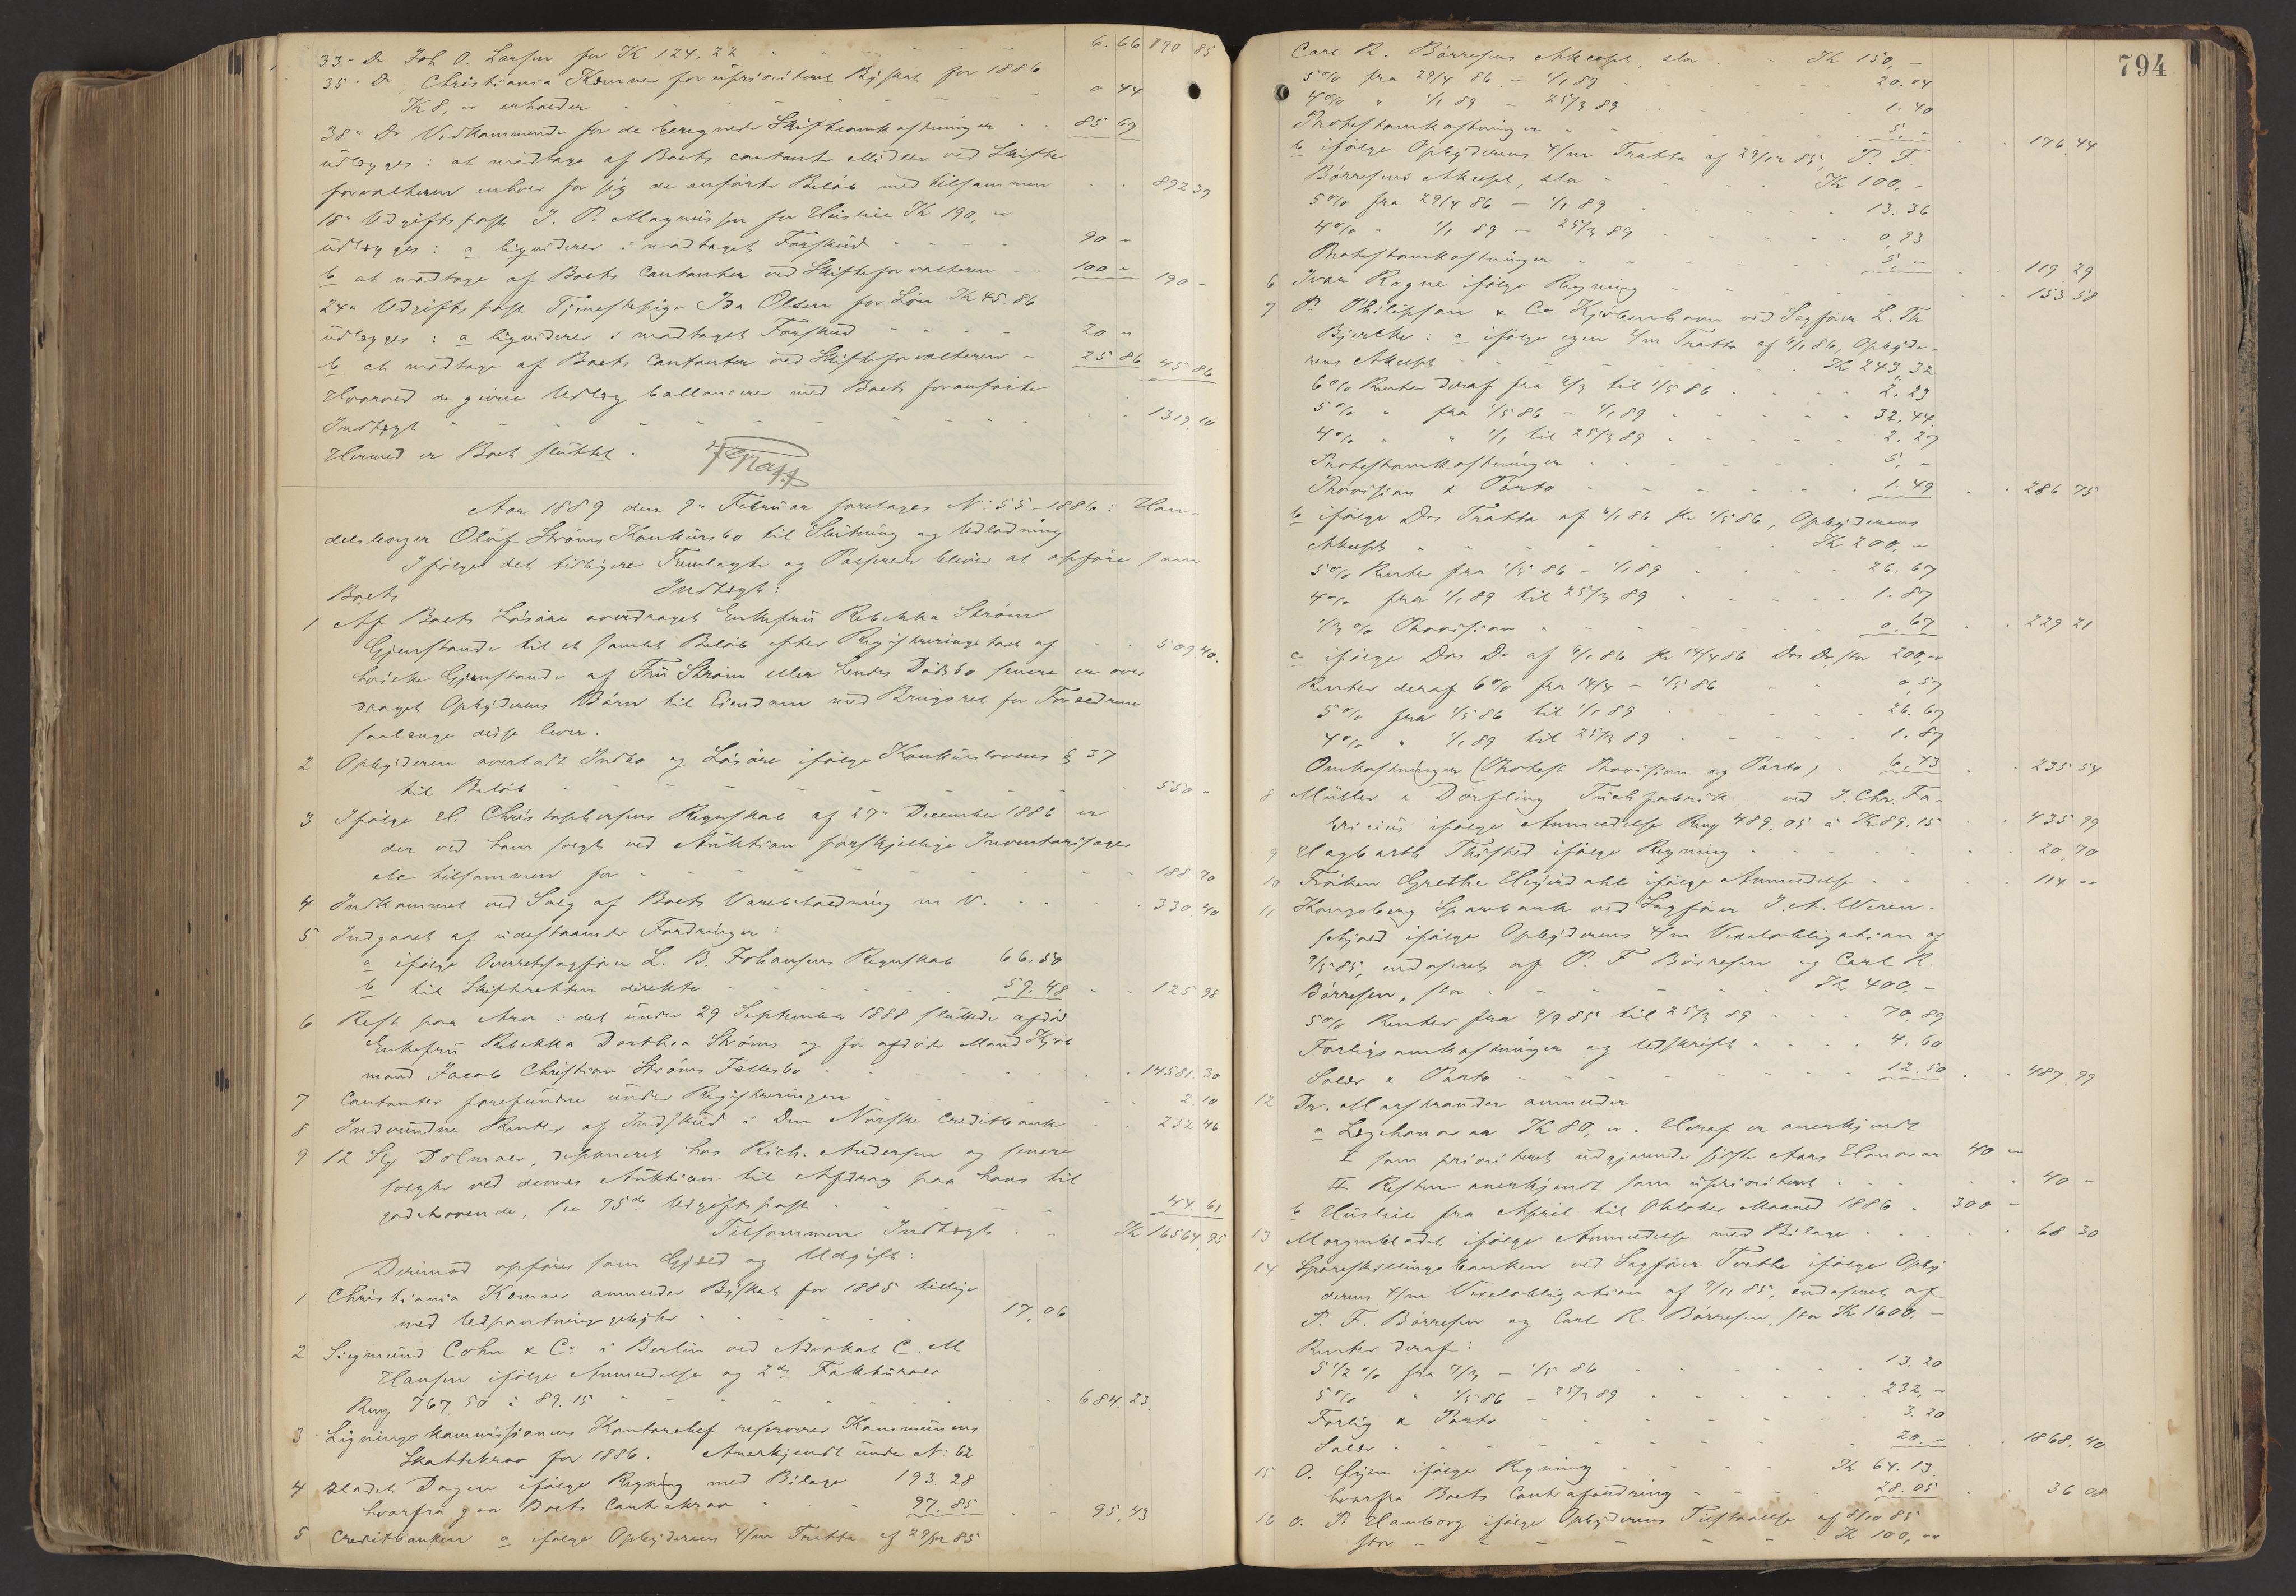 33 - Do Joh O. Larsen for K 124.22 - - - 6.66 890 85
35 - Do Christiania Kemner for uprioriteret Byskat for 1886
K 8, " erholder - - - 0 44
38 " Do Vedkommende for de beregnede Skifteomkostninger - - 85 69
udlægges: at modtage af Boets contante Midler ved Skifte
forvalteren enhver for sig de anførte Beløb med tilsammen - - 892 39
18 " Udgiftspost J. P. Magnussen for Husleie K 190, "
udlægges: a liqviderer i modtaget Forskud - - - 90 "
b at modtage af Boets Contanter ved Skifteforvalteren - 100 " 190 -
24 " Udgiftspost Tjenestepige Ida Olsen for Løn K 45.86
udlægges: a liqviderer i modtaget Forskud - - - 20 "
b at modtage af Boets Contanter ved Skifteforvalteren - 25 86 45 86
Hvorved de givne Udlæg ballancerer med Boets foranførte
Indtægt - - - 1319.10
Hermed er Boet sluttet.
Aar 1889 den 9 " Februar foretages No 55 - 1886: Han-
delsborger Oluf Strøms Konkursbo til Slutning og Udlodning
Ifølge det tidligere Fremlagte og Passerede bliver at opføre som
Boets Indtægt:
1 Af Boets Løsøre overdraget Enkefru Rebekka Strøm
Gjenstande til et samlet Beløb efter Registreringstaxt af - - 509.40.
hvilke Gjenstande af Fru Strøm eller hendes Dødsbo senere er over
draget Opbyderens Børn til Eiendom med Brugsret for Forældrene
saalænge disse lever.
2 Opbyderen overladt Indbo og Løsøre ifølge Konkurslovens § 37
til Beløb - - - 550 -
3 Ifølge El. Christophersens Regnskab af 27 " December 1886 er
der ved ham solgt ved Auktion forskjellige Inventariesager
etc tilsammen for - - - 188.70
4 Indkommet ved Salg af Boets Varebeholdning m V. - - - 330.40
5 Indgaaet af udestaaende Fordringer:
a ifølge Overretssagfører L. B. Johansens Regnskab 66.50
b til Skifteretten direkte - - - 59.48 - - 125 98
6 Rest paa Arv i det under 29 September 1888 sluttede afdøde
Enkefru Rebekka Dorthea Strøms og før afdøde Mand Kjøb
mand Jacob Christian Strøms Fællesbo - - - 14581.30
7 Contanter forefundne under Registreringen - - - 2.10
8 Indvundne Renter af Indskud i Den Norske Creditbank - - 232 46
9 12 Stk Dolmaer, deponeret hos Rich. Andersen og senere
solgte ved dennes Auktion til Afdrag paa hans til
godehavende, se 75de Udgiftspost - - - 44.61
Tilsammen Indtægt - - K 16564.95
Derimod opføres som Gjæld og Udgift:
1 Christiania Kemner anmelder Byskat for 1885 tillige
med Udpantningsgebyhr - - - 17,06
2 Siegmund Cohn & Co i Berlin ved Advokat C. M
Hansen ifølge Anmeldelse og 2de Fakturaer
Rmg 767.50 à 89.15 - - - 684.23.
3 Ligningskommissionens Kontorchef reserverer Kommunens
Skattekrav for 1886. Anerkjendt under No: 62
4 Bladet Dagen ifølge Regning med Bilage 193.28
hvorfra gaar Boets Contrakrav - - - 97.85 - - 95.43
5 Creditbanken a ifølge Opbyderens 4/m Tratta af 29/12 85
794
Carl R. Børresens Akcept, stor - - K 150, -
5% fra 29/4 86 - 1/1 89 - - - 20.04
4% " 1/1 89 - 25/3 89 - - - 1.40
Protestomkostninger - - - 5, - - - 176.44
b ifølge Opbyderens 4/m Tratta af 29/12 85, P. F.
Børresens Akcept, stor - - - K 100, -
5% fra 29/4 86 - 1/1 89 - - - 13.36
4% " 1/1 89 - 25/3 89 - - - 0,93
Protestomkostninger - - - 5, - - - 119 29
6 Ivar Rogne ifølge Regning - - - 153 58
7 P. Philipson & Co Kjøbenhavn ved Sagfører L. Th
Bjercke: a ifølge egen 2/m Tratta af 6/1 86, Opbyde-
rens Akcept - - - K 243,32
6% Renter deraf fra 6/3 til 1/5 86 - - - 2.23
5% " fra 1/5 86 - 1/1 89 - - - 32.44.
4% " " 1/1 til 25/3 89 - - - 2.27
Protestomkostninger - - - 5, "
Provision & Porto - - - 1.49 - - 286 75
b ifølge Dos Tratta af 6/1 86 pr 1/5 86, Opbyderens
Akcept - - - K 200, -
5% Renter fra 1/5 86 - 1/1 89 - - - 26.67
4% fra 1/1 89 til 25/3 89 - - - 1.87
1/3% Provision - - - 0.67 - - 229 21
c ifølge Dos Do af 6/1 86 pr 14/4 86 Dos Do, stor 200, "
Renter deraf 6% fra 14/4 - 1/5 86 - - 0,57
5% fra 1/5 86 til 1/1 89 - - - 26.67
4% " 1/1 89 til 25/3 89 - - - 1.87
Omkostninger (Protest Provision og Porto) - 6.43 - - 235 54
8 Müller & Dörfling Tuchfabrik ved J. Chr. Fa-
bricius ifølge Anmeldelse Rmg 489.05 à K 89.15 - - 435 99
9 Hagbarth Thisted ifølge Regning - - - 20,70
10 Frøken Grethe Heyerdahl ifølge Anmeldelse - - - 114 "
11 Kongsberg Sparebank ved Sagfører J. A. Weren-
skjold ifølge Opbyderens 4/m Vexelobligation af
9/5 85, endosseret af P. F Børresen og Carl R.
Børresen, stor - - - K 400, -
5% Renter fra 9/9 85 til 25/3 89 - - - 70,89
Forligsomkostninger og Udskrift - - - 4.60
Salær & Porto - - - 12.50 - - 487.99
12 Dr. Marstrander anmelder
a Lægehonorar K 80, ". Heraf er anerkjendt
I som prioriteret udgjørende sidste Aars Honorar 40 "
II Resten anerkjendt som uprioriteret - - - 40 -
b Husleie fra April til Oktober Maaned 1886 - 300 -
13 Morgenbladet ifølge Anmeldelse med Bilage - - - 68 30
14 Spareskillingsbanken ved Sagfører Tvethe ifølge Opby
derens 4/m Vexelobligation af 7/11 85, endosseret af
P. F. Børresen og Carl R. Børresen, stor K 1600, -
Renter deraf:
5 1/2 % fra 7/3 - 1/5 86 - - - 13.20
5% " 1/5 86 - 25/3 89 - - - 232, -
Forlig & Porto - - - 3.20
Salær - - - 20. - - - 1868.40
15 O. Øyen ifølge Regning - - - K 64.13.
hvorfra Boets Contrafordring - - - 28.05 - - 36 08
16 O. P. Hamborg ifølge Opbyderens Tilstaaelse af 8/10 85
stor - - - K 100, "